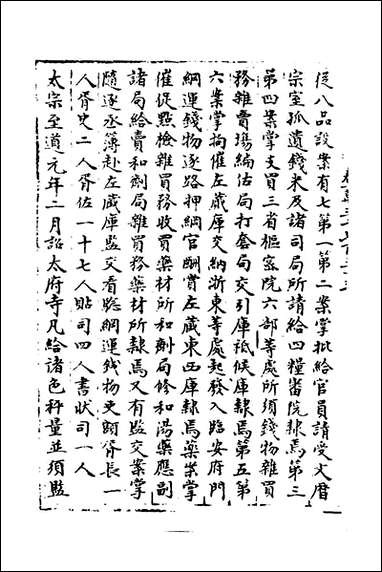 從八品設案有七第一第二案掌批給官員請受文曆
宗室孤遺錢米及諸司局所請給四糧審院隸焉第三
第四案掌支買三省樞密院六部等處所須錢物雜買
務雜賣塲編估局打套局交引庫祇候庫隸焉第五第
六案掌拘催左藏庫交納浙東等處起發入臨安府門
綱運錢物逐路押綱官酬賞左藏東西庫隸焉藥案掌
催促點檢雜買務收買藥材所和劑局修和湯藥應副
諸局給賣和劑局雜買務藥材所隸焉又有監交案掌
隨逐丞簿赴左藏庫監交看驗綱運錢物吏額胥長一
人胥史二人胥佐一十七人貼司四人書狀司一人
太宗至道元年二月詔太府寺凡給諸色秤量並須監